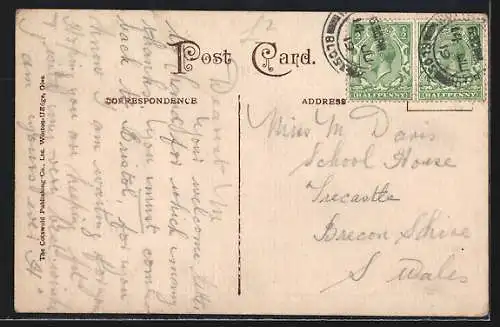 £2
Post Card.
CORRESPONDENCE
ADDRESS
The Cotswold Publishing Co., Ltd. Wotton-U-Edge, Glos.
Dearest Vin
Your welcome letter
to hand for which many
thanks, you must come
back to Bristol, for you
know I am wanting for you
Hoping you are keeping
I am
Miss M Davis
School House
Trecastle
Brecon Shire
S Wales
HALFPENNY
HALFPENNY